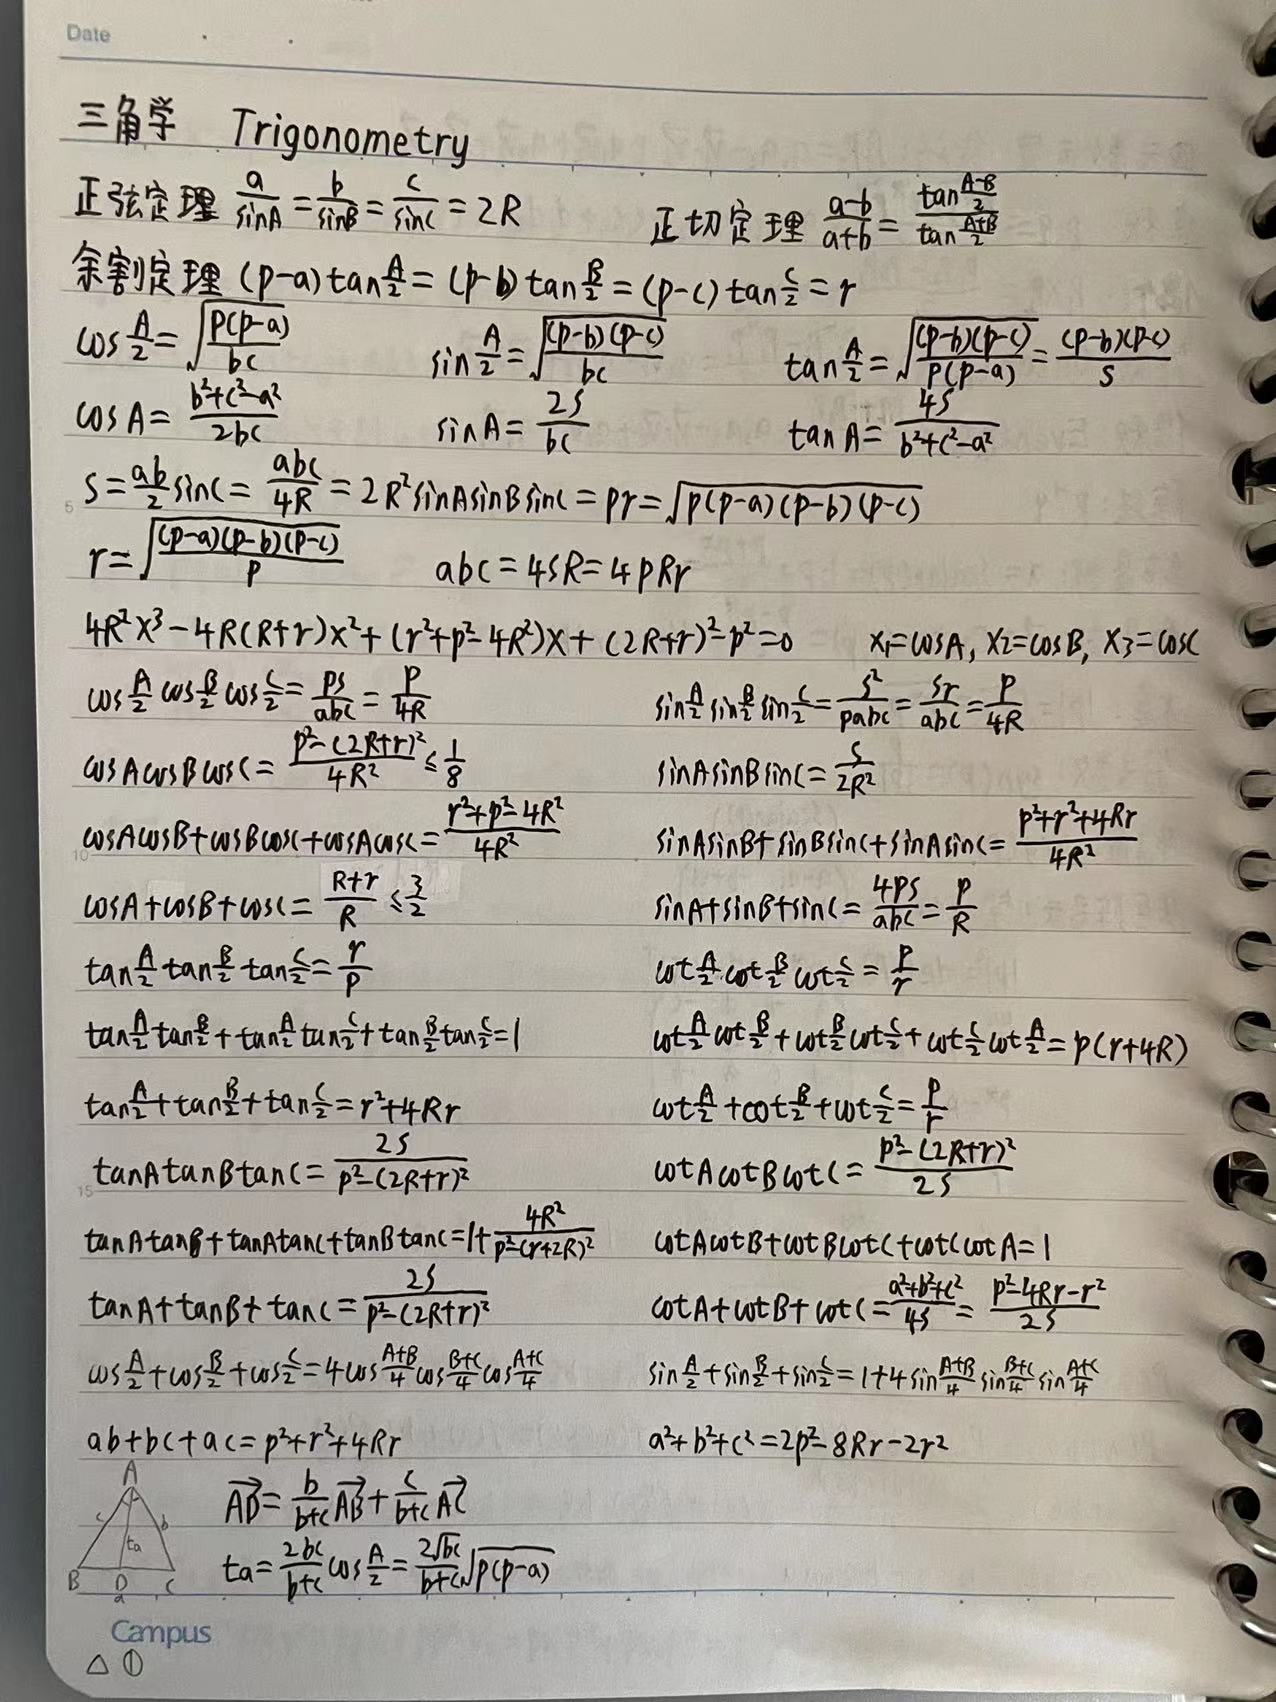 Date
三角学 Trigonometry
正弦定理 a/sinA = b/sinB = c/sinC = 2R 正切定理 (a-b)/(a+b) = tan((A-B)/2)/tan((A+B)/2)
余割定理 (p-a)tan A/2 = (p-b)tan B/2 = (p-c)tan C/2 = r
cos A/2 = √(p(p-a)/bc) sin A/2 = √((p-b)(p-c)/bc) tan A/2 = √((p-b)(p-c)/p(p-a)) = (p-b)(p-c)/S
cosA = (b²+c²-a²)/2bc sinA = 2S/bc tanA = 4S/(b²+c²-a²)
5 S = ab/2 sinC = abc/4R = 2R²sinAsinBsinC = pr = √(p(p-a)(p-b)(p-c))
r = √((p-a)(p-b)(p-c)/p) abc = 4SR = 4pRr
4R²x³ - 4R(R+r)x² + (r²+p²-4R²)x + (2R+r)²-p² = 0 x₁=cosA, x₂=cosB, x₃=cosC
cos A/2 cos B/2 cos C/2 = pS/abc = p/4R sin A/2 sin B/2 sin C/2 = S²/pabc = Sr/abc = p/4R
cosAcosBcosC = (p²-(2R+r)²)/4R² ≤ 1/8 sinAsinBsinC = S/2R²
10 cosAcosB+cosBcosC+cosAcosC = (r²+p²-4R²)/4R² sinAsinB+sinBsinC+sinAsinC = (p²+r²+4Rr)/4R²
cosA+cosB+cosC = (R+r)/R ≤ 3/2 sinA+sinB+sinC = 4pS/abc = p/R
tan A/2 tan B/2 tan C/2 = r/p cot A/2 cot B/2 cot C/2 = p/r
tan A/2 tan B/2 + tan A/2 tan C/2 + tan B/2 tan C/2 = 1 cot A/2 cot B/2 + cot B/2 cot C/2 + cot C/2 cot A/2 = p(r+4R)
tan A/2 + tan B/2 + tan C/2 = r²+4Rr cot A/2 + cot B/2 + cot C/2 = p/r
15 tanAtanBtanC = 2S/(p²-(2R+r)²) cotAcotBcotC = (p²-(2R+r)²)/2S
tanAtanB+tanAtanC+tanBtanC = 1+4R²/(p²-(r+2R)²) cotAcotB+cotBcotC+cotCcotA = 1
tanA+tanB+tanC = 2S/(p²-(2R+r)²) cotA+cotB+cotC = (a²+b²+c²)/4S = (p²-4Rr-r²)/2S
cos A/2 + cos B/2 + cos C/2 = 4cos (A+B)/4 cos (B+C)/4 cos (A+C)/4 sin A/2 + sin B/2 + sin C/2 = 1+4sin (A+B)/4 sin (B+C)/4 sin (A+C)/4
ab+bc+ac = p²+r²+4Rr a²+b²+c² = 2p²-8Rr-2r²
A
c b ta
B D C
a
AD→ = b/(b+c) AB→ + c/(b+c) AC→
ta = 2bc/(b+c) cos A/2 = 2√bc/(b+c) √(p(p-a))
Campus
△ ①